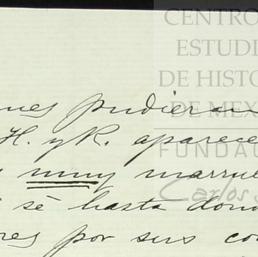 CENTRO
ESTUDI
DE HISTO
DE MEXI
FUNDA
Carlos S
nes pudier
H. y R. aparece
muy marrue
sé hasta don
res por sus co